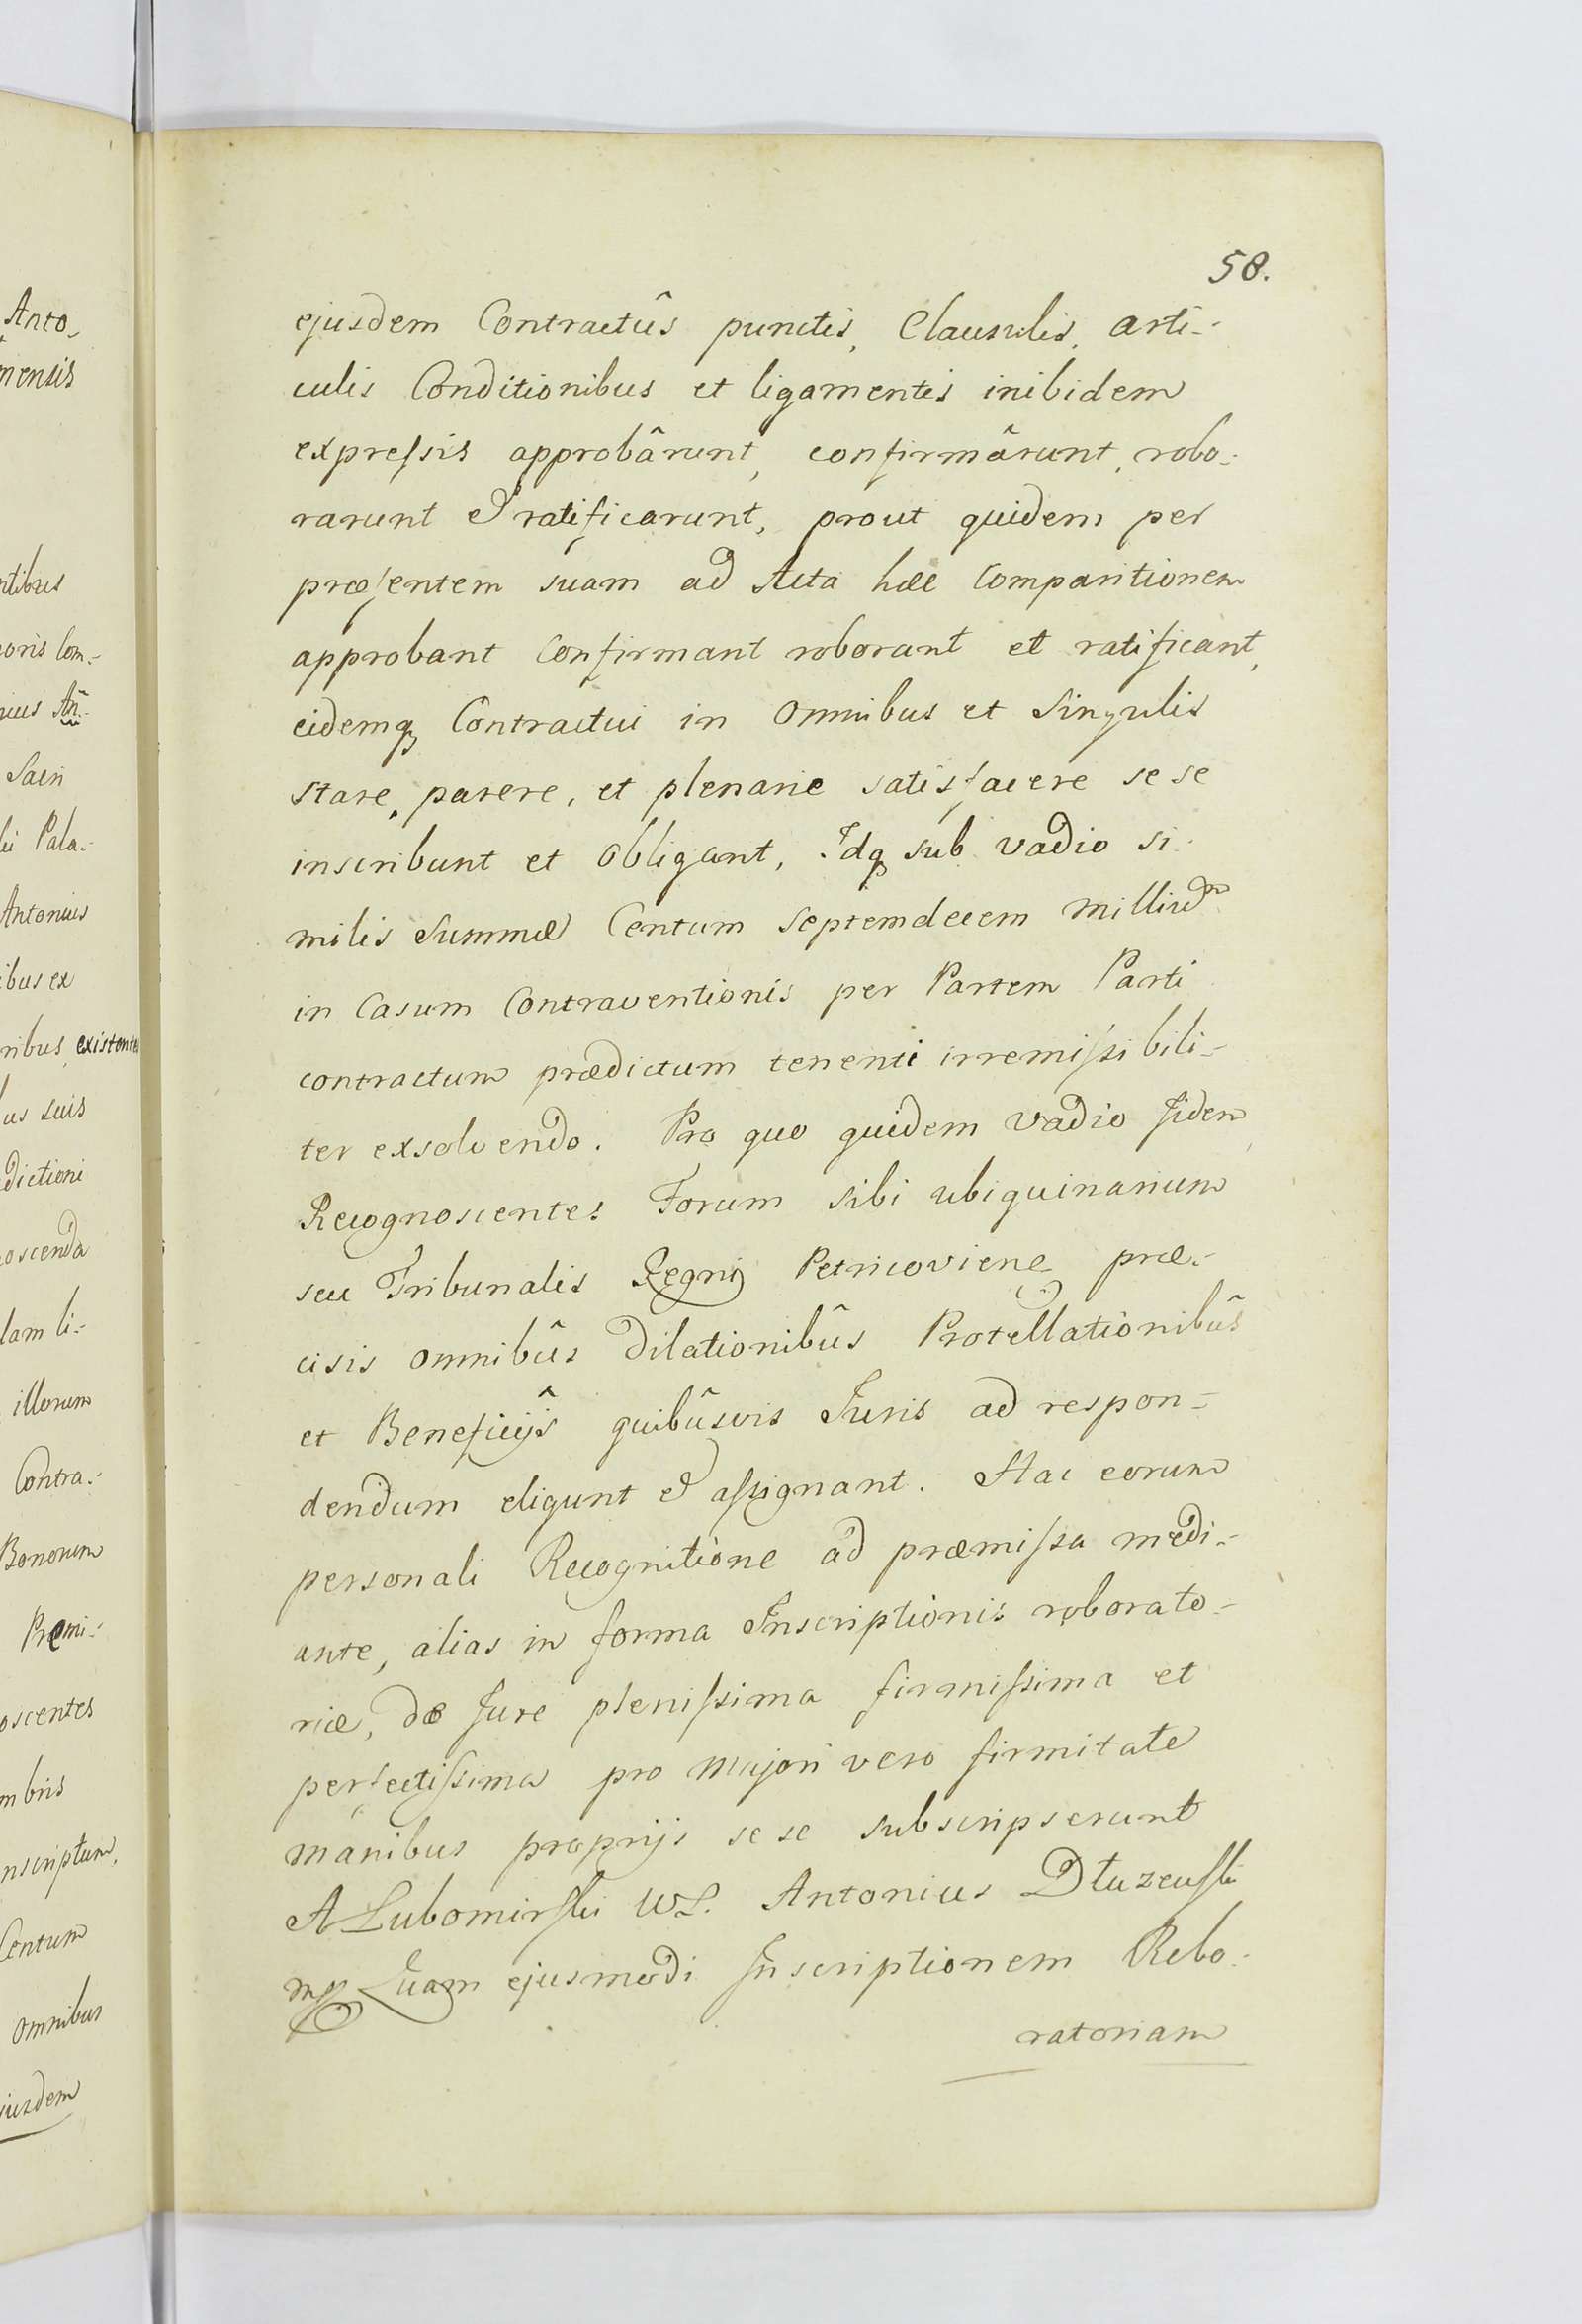 Anto-
mensis
ntibus
oris Com-
Sacri
Pala-
Antonius
ibus ex
ribus existentes
us suis
dictioni
oscenda
lam li-
illorum
Contra-
Bonorum
Premi-
oscentes
mbris
nscriptum,
Centum
omnibus
ejusdem
58.
ejusdem Contractûs punctis, Clausulis, arti-
culis Conditionibus et ligamentis inibidem
expreſsis approbârunt, confirmârunt, robo-
rarunt et ratificarunt, prout quidem per
præſentem suam ad Acta hæc Comparitionem
approbant Confirmant roborant et ratificant,
eidemq Contractui in Omnibus et Singulis
stare, parere, et plenarie satisfacere sese
inscribunt et Obligant, Idq sub vadio si-
milis Summæ Centum Septemdecem Milliū
in Casum Contraventionis per Partem Parti
contractum prædictum tenenti irremiſsibili-
ter exsolvendo. Pro quo quidem Vadio Iidem
Recognoscentes Forum sibi ubiquinarium
seu Tribunalis Regni Petricovien præ-
cisis omnibûs Dilationibûs Protellationibûs
et Beneficijs quibûsvis Juris ad respon-
dendum eligunt et aſsignant. Hac eorum
personali Recognitione ad præmiſsa medi-
ante, alias in forma Inscriptionis roborato-
riæ, de Jure pleniſsima firmiſsima et
perfectiſsima pro Majori vero firmitate
manibus proprijs sese subscripserunt
A Lubomirſki WL. Antonius Dłuzewſki
mp Quam ejusmodi Inscriptionem Robo-
ratoriam